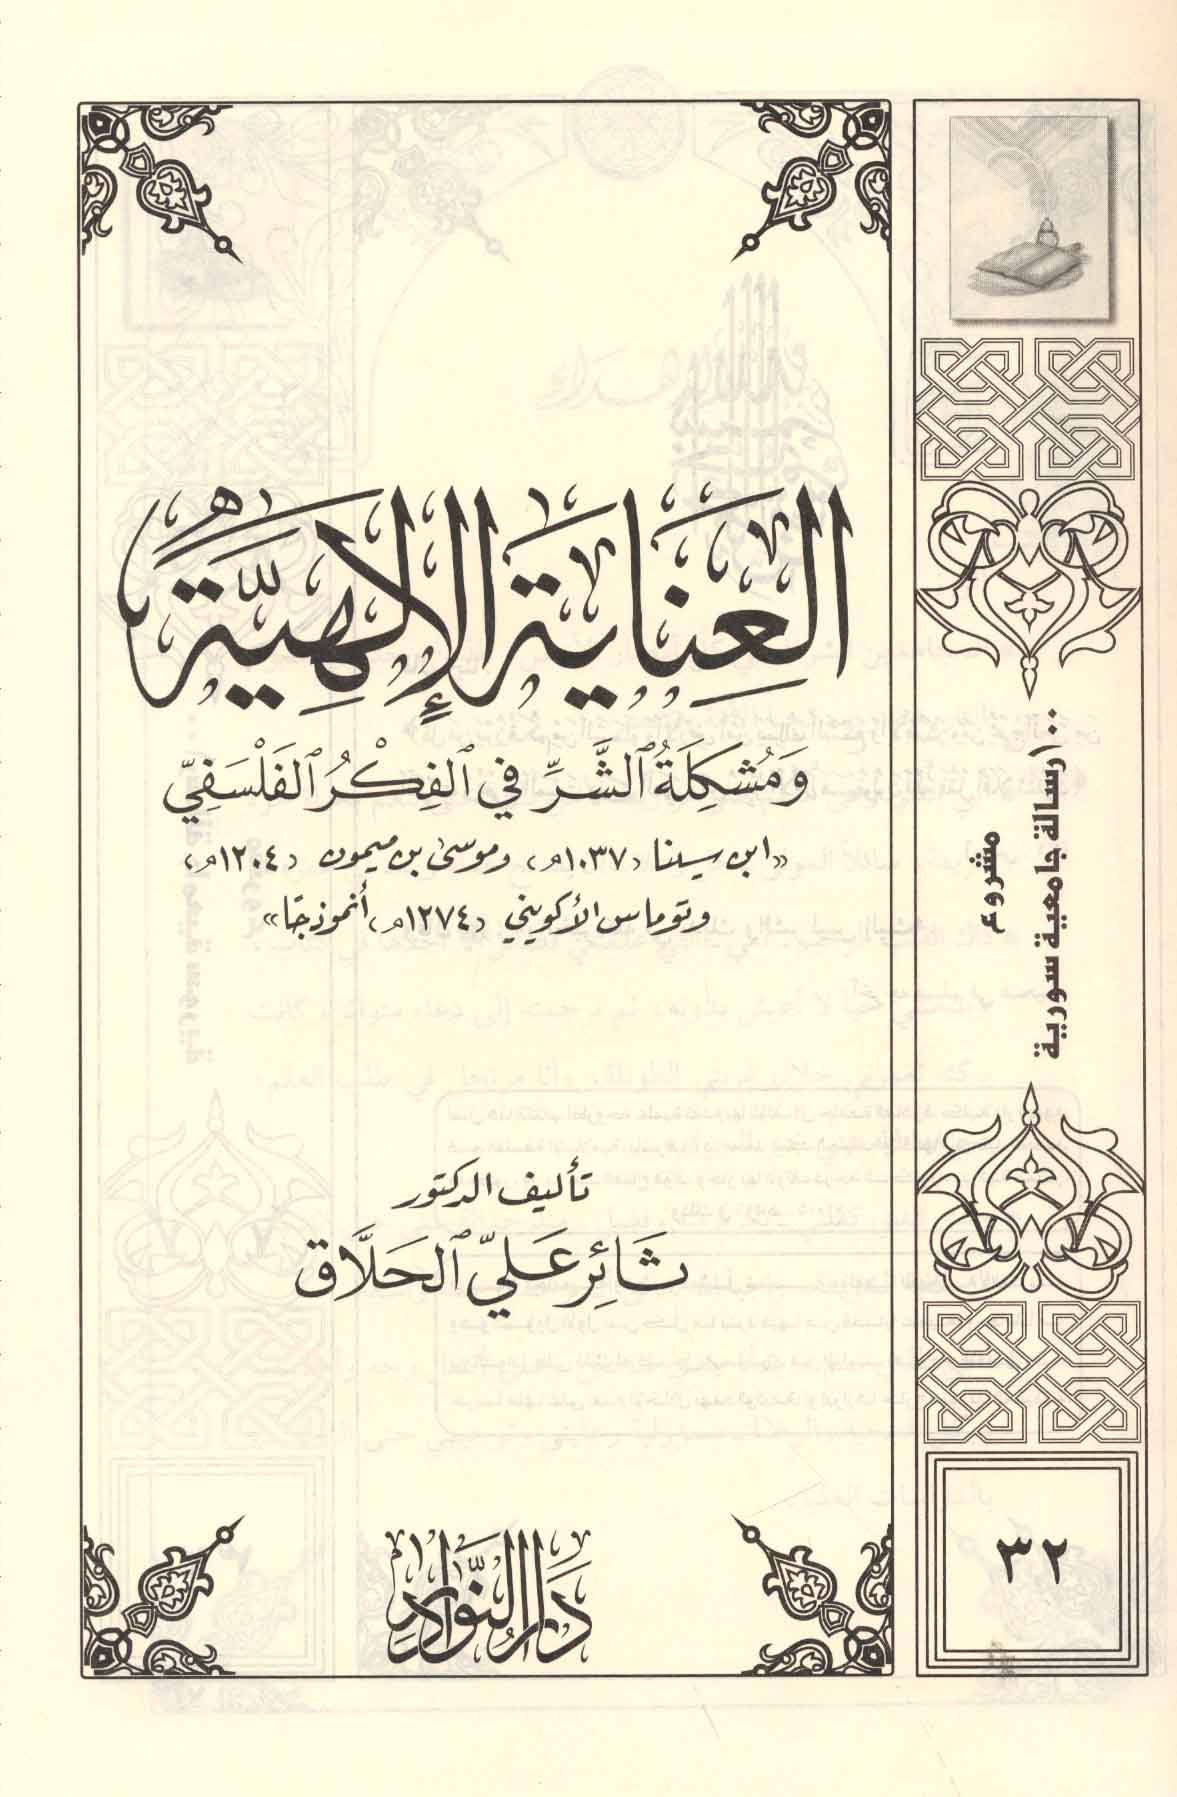 العِنَايَةُ الإِلٰهِيَّةُ
وَمُشكِلَةُ الشَّرِّ في الفِكْرِ الفَلْسَفِيّ
«ابن سينا (١٠٣٧م) وموسى بن ميمون (١٢٠٤م)
وتوماس الأكويني (١٢٧٤م) أنموذجًا»
تأليف الدكتور
ثَائِر عَليّ الحَلَّاق
دَارُ النَّوَادِرِ
مشروع
١٠٠ رسالة جامعية سورية
٣٢